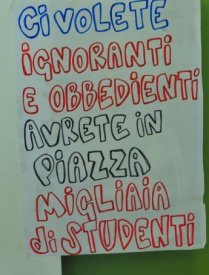 Ci VOLETE
iGNORANTi
E OBBEDiENTi
AVRETE iN
PiAZZA
MiGLiAiA
di STUDENTi